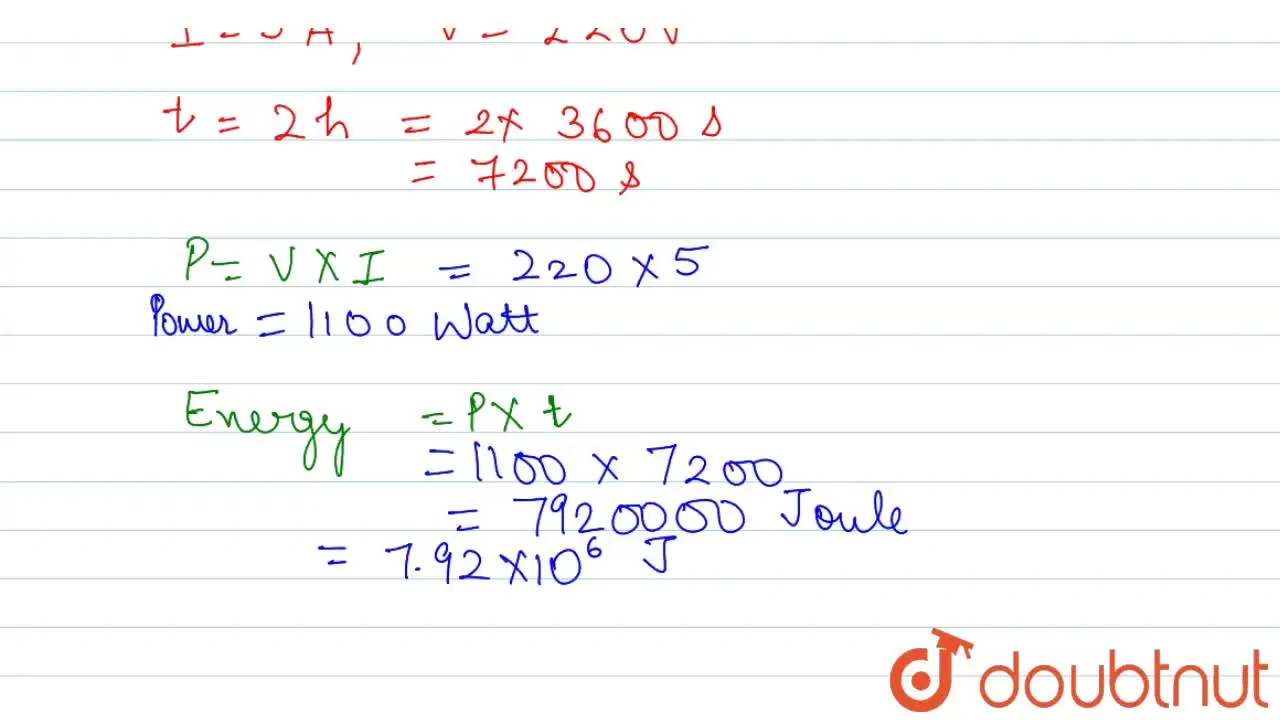 I = 5 A, V = 220V
t = 2h = 2x 3600 s
= 7200 s
P = V X I = 220 x 5
Power = 1100 Watt
Energy = P X t
= 1100 x 7200
= 7920000 Joule
= 7.92 x 10⁶ J
doubtnut